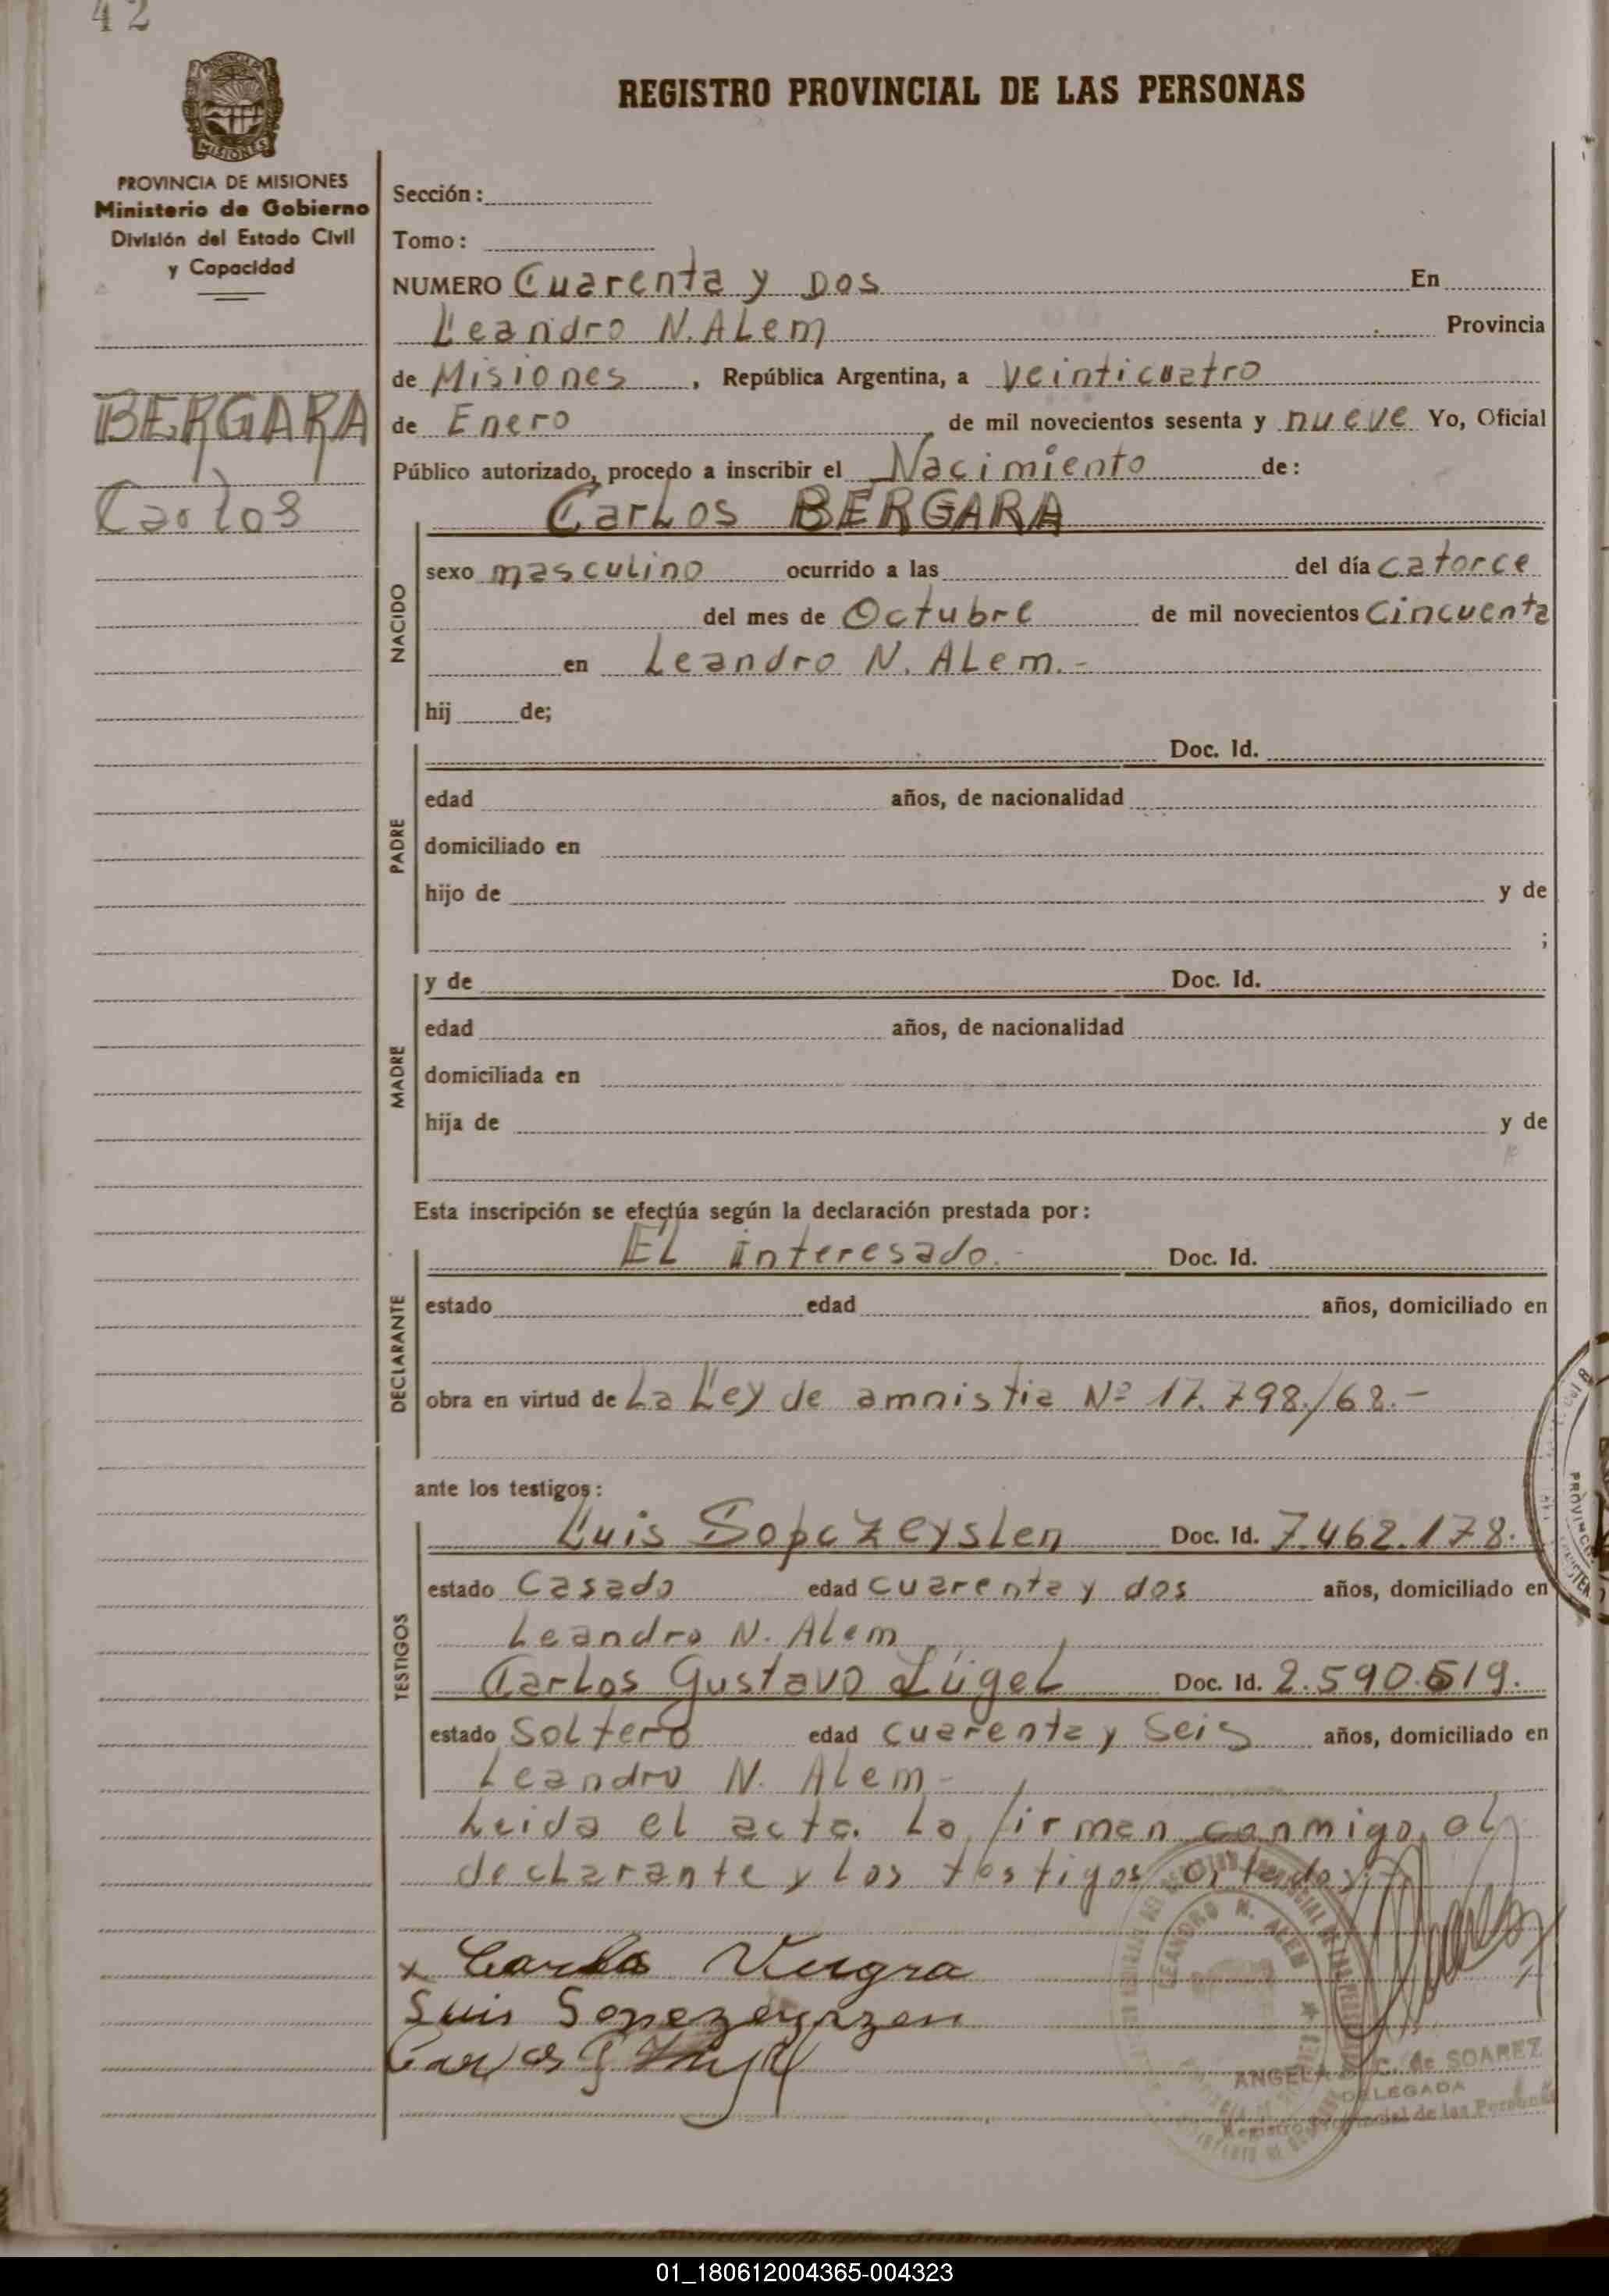 42
REGISTRO PROVINCIAL DE LAS PERSONAS
MISIONES
PROVINCIA DE MISIONES
Ministerio de Gobierno
División del Estado Civil
y Capacidad
BERGARA
Carlos
Sección:
Tomo:
NUMERO Cuarenta y Dos En
Leandro N. ALem Provincia
de Misiones, República Argentina, a veinticuatro
de Enero de mil novecientos sesenta y nueve Yo, Oficial
Público autorizado, procedo a inscribir el Nacimiento de:
CarLos BERGARA
NACIDO
sexo masculino ocurrido a las del día catorce
del mes de Octubre de mil novecientos Cincuenta
en Leandro N. ALem.-
hij de;
PADRE
Doc. Id.
edad años, de nacionalidad
domiciliado en
hijo de y de
;
MADRE
y de Doc. Id.
edad años, de nacionalidad
domiciliada en
hija de y de
Esta inscripción se efectúa según la declaración prestada por:
DECLARANTE
EL interesado.- Doc. Id.
estado edad años, domiciliado en
obra en virtud de La Ley de amnistia Nº 17.798./68.-
ante los testigos:
TESTIGOS
Luis SopczeysLen Doc. Id. 7.462.178.
estado Casado edad cuarenta y dos años, domiciliado en
Leandro N. Alem
CarLos Gustavo Lügel Doc. Id. 2.590.619.
estado SoLtero edad cuarenta y Seis años, domiciliado en
Leandro N. Alem-
Leida el acta. La firman conmigo, el
decLarante y los testigos citados.
x Carlos Vergra
Luis
Carlos G
LEANDRO N. ALEM
ANGELA C. de SOAREZ
DELEGADA
Registro Provincial de las Personas
01_180612004365-004323